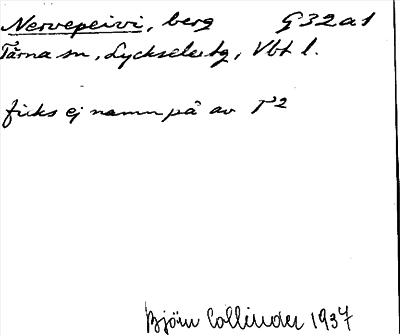 Nervepeivi, berg G 32 a 1
Tärna sn, Lycksele tg, Vbt l.
ficks ej namn på av T2
Björn Collinder 1937